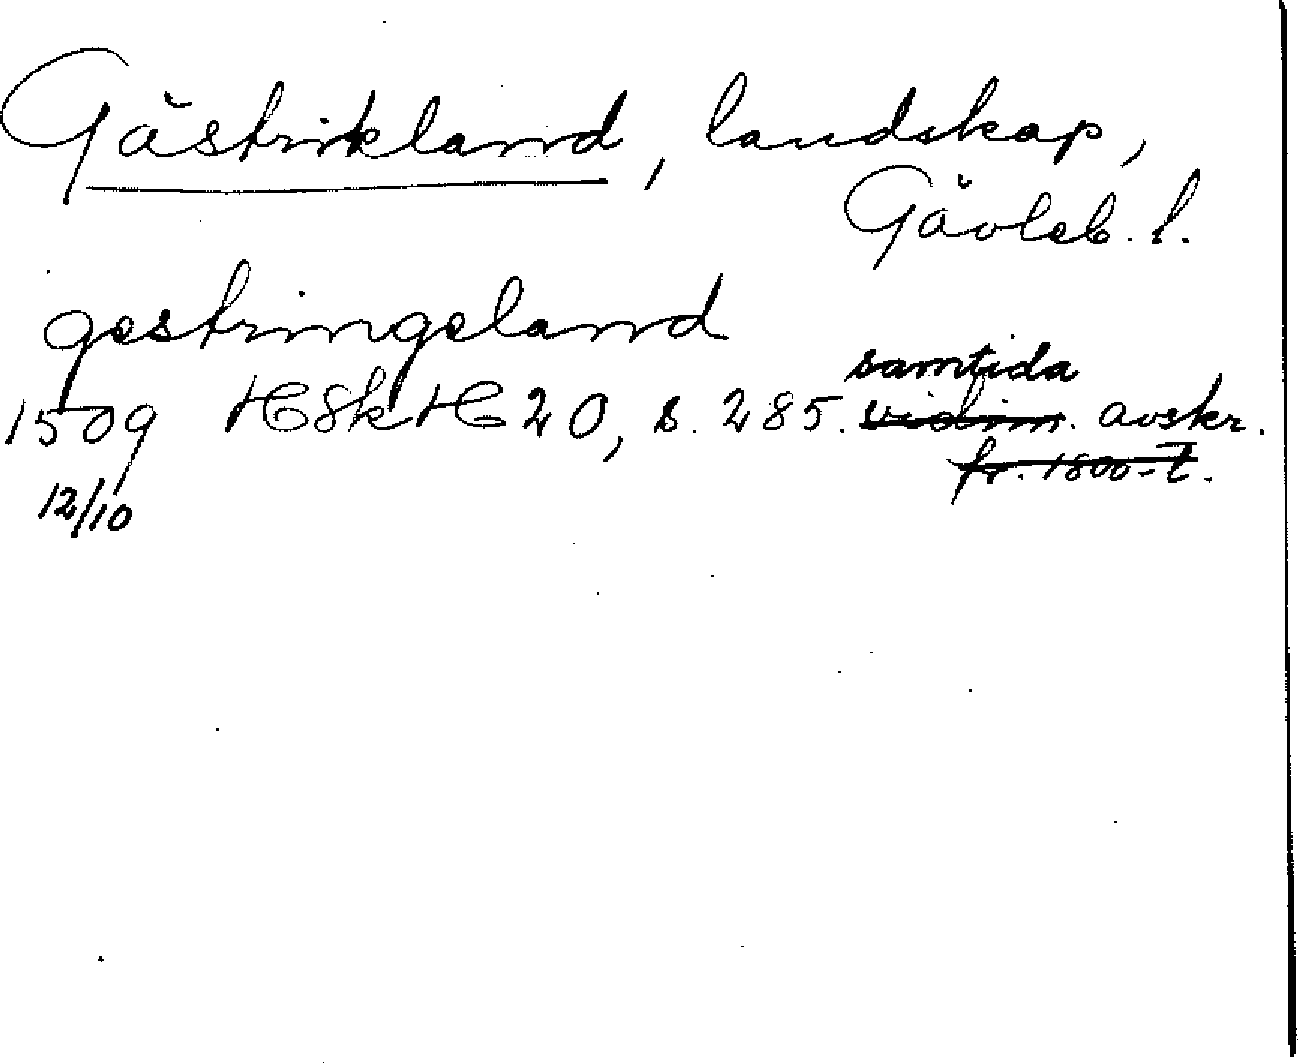 Gästrikland, landskap,
Gävleb. l.
gestringeland
samtida
1509 HSkH 20, s. 285. vidim. avskr.
fr. 1500-t.
12/10